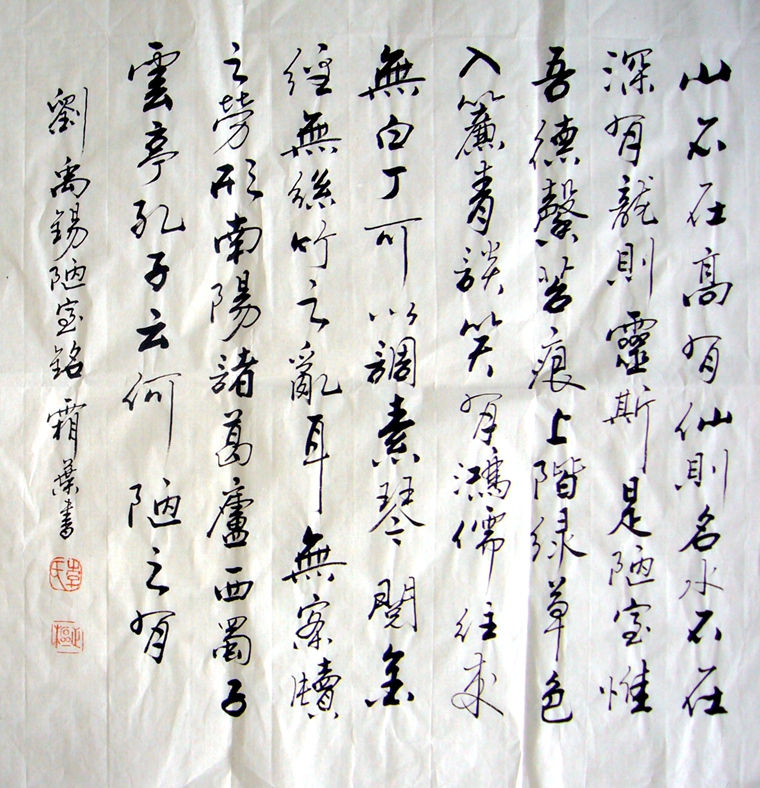 山不在高有仙則名水不在
深有龍則靈斯是陋室惟
吾德馨苔痕上階緑草色
入簾青談笑有鴻儒往來
無白丁可以調素琴閱金
經無絲竹之亂耳無案牘
之勞形南陽諸葛廬西蜀子
雲亭孔子云何陋之有
劉禹錫陋室銘 霜葉書